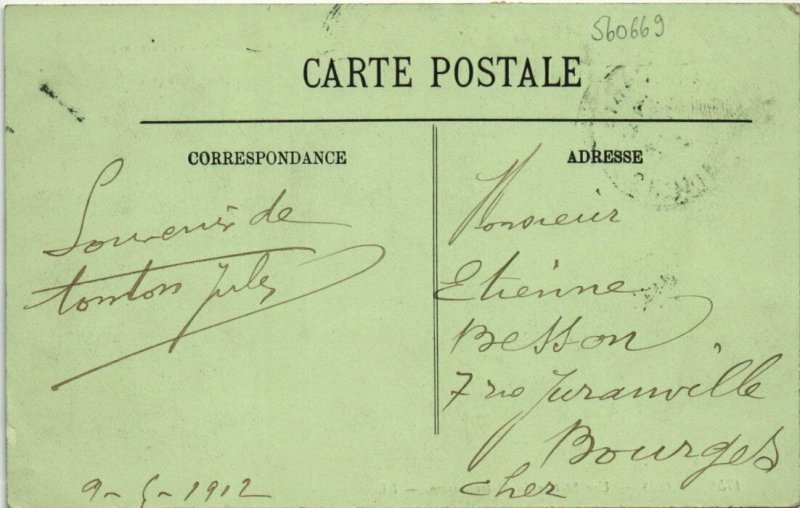 560669
CARTE POSTALE
CORRESPONDANCE
Souvenir de
tonton Jules
9-5-1912
ADRESSE
Monsieur
Etienne
Besson
7 rue Juranville
Bourges
Cher